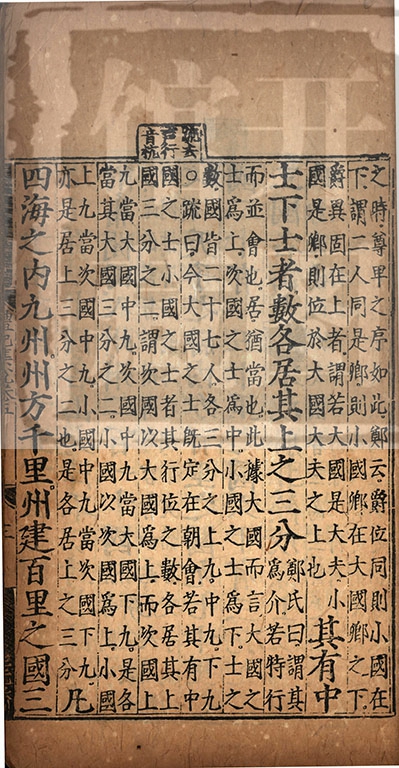 之時尊卑之序如此鄭云爵位同則小國在
下謂二人同是卿則小國卿在大國卿之下
爵異固在上者謂若大國是大夫小
國是卿則位於大國大夫之上也
其有中
士下士者數各居其上之三分
鄭氏曰謂其
爲介若特行
而並會也居猶當也此據大國而言大國之
士爲上次國之士爲中小國之士爲下士之
數國皆二十七人各三分之上九中九下九
○疏曰今大國之士旣定在朝會若其有中
國之士小國之士者其行位之數各居其上
國三分之二謂次國以大國爲上而次國上
九當大國中九次國中九當大國下九是各
當其大國三分之二小國以次國爲上小國
上九當次國中九小國中九當次國下九
亦是居上三分之二也是各居上之三分
凡
四海之內九州州方千里州建百里之國三